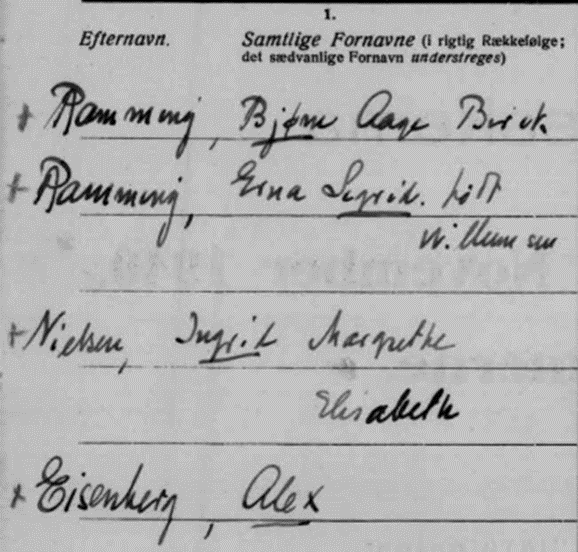 1.
Efternavn. Samtlige Fornavne (i rigtig Rækkefølge;
det sædvanlige Fornavn understreges)
+ Ramming, Bjørn Aage Birck
+ Ramming, Erna Sigrid. født
Willumsen
+ Nielsen, Ingrid Margrethe
Elisabeth
+ Eisenberg, Alex